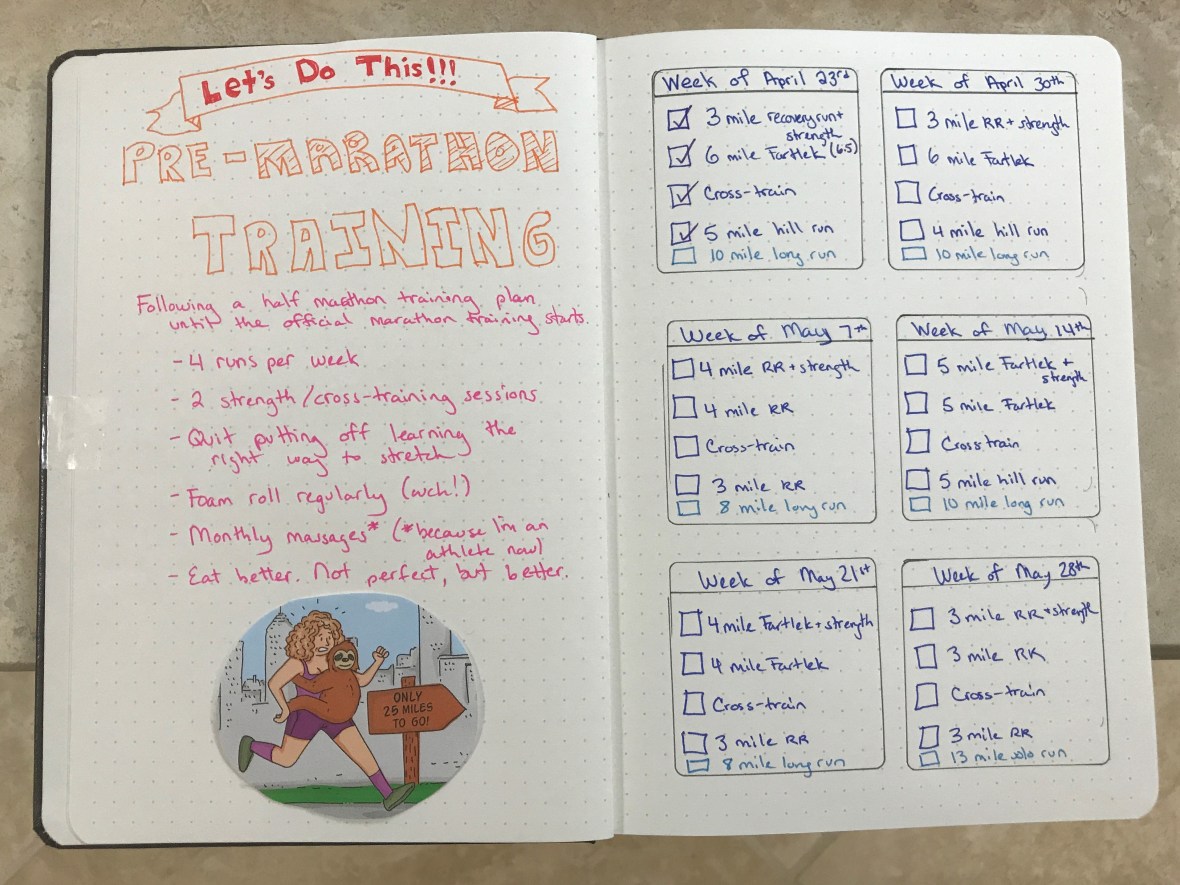 Let's Do This!!!
PRE-MARATHON
TRAINING
Following a half marathon training plan
until the official marathon training starts.
- 4 runs per week
- 2 strength/cross-training sessions
- Quit putting off learning the
right way to stretch
- Foam roll regularly (ouch!)
- Monthly massages* (*because I'm an
athlete now)
- Eat better. Not perfect, but better.
ONLY
25 MILES
TO GO!
Week of April 23rd
3 mile recovery run +
strength
6 mile Fartlek (6.5)
Cross-train
5 mile hill run
10 mile long run
Week of April 30th
3 mile RR + strength
6 mile Fartlek
Cross-train
4 mile hill run
10 mile long run
Week of May 7th
4 mile RR + strength
4 mile RR
Cross-train
3 mile RR
8 mile long run
Week of May 14th
5 mile Fartlek +
strength
5 mile Fartlek
Cross train
5 mile hill run
10 mile long run
Week of May 21st
4 mile Fartlek + strength
4 mile Fartlek
Cross-train
3 mile RR
8 mile long run
Week of May 28th
3 mile RR + strength
3 mile RR
Cross-train
3 mile RR
13 mile solo run